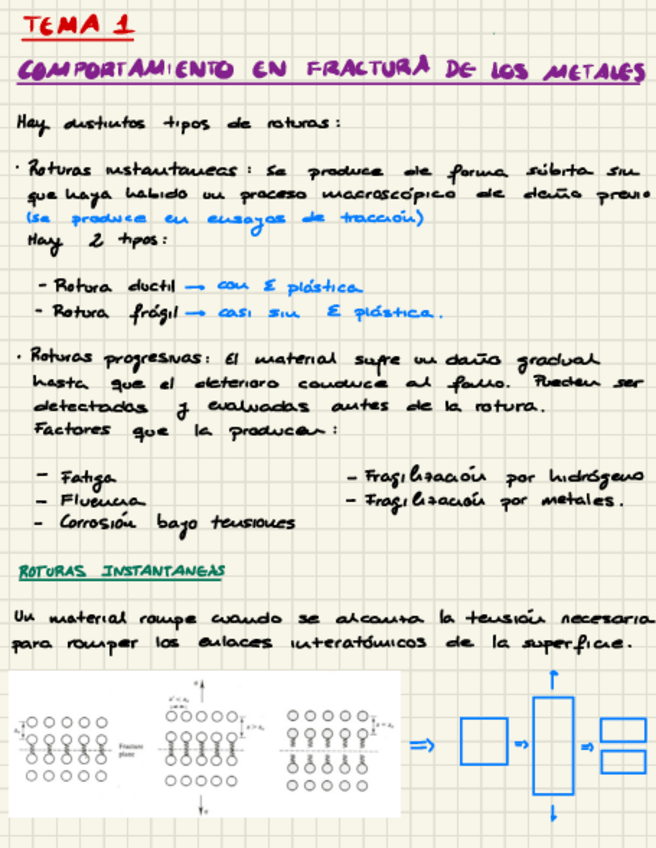 TEMA 1
COMPORTAMIENTO EN FRACTURA DE LOS METALES
Hay distintos tipos de roturas:
· Roturas instantaneas: Se produce de forma súbita sin
que haya habido un proceso macroscópico de daño previo
(se produce en ensayos de tracción)
Hay 2 tipos:
- Rotura ductil → con Ɛ plástica
- Rotura frágil → casi sin Ɛ plástica.
· Roturas progresivas: El material sufre un daño gradual
hasta que el deterioro conduce al fallo. Pueden ser
detectadas y evaluadas antes de la rotura.
Factores que la producen:
- Fatiga
- Fluencia
- Corrosión bajo tensiones
- Fragilización por hidrógeno
- Fragilización por metales.
ROTURAS INSTANTANEAS
Un material rompe cuando se alcanza la tensión necesaria
para romper los enlaces interatómicos de la superficie.
Fracture
plane